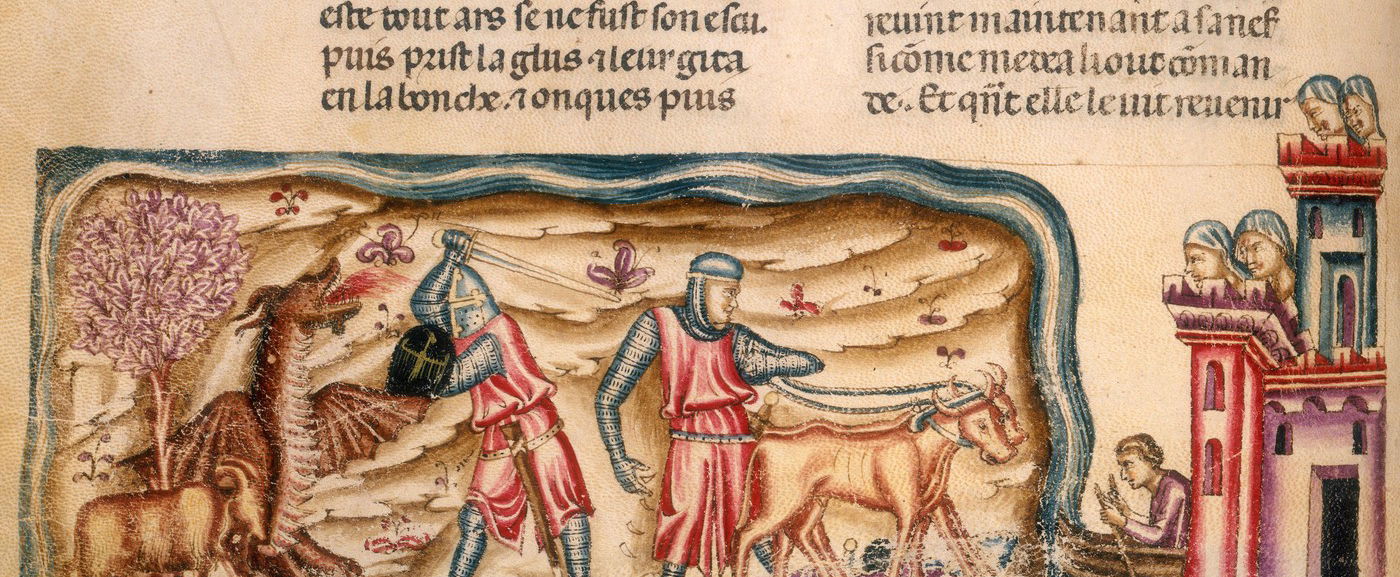 este tout ars se ne fust son escu.
puis prist la glus ⁊ leur gita
en la bouche. ⁊ onques puis
reuint maintenant a sa nef
si cōme medea li out cōman
de. Et qn̄t elle le uit reuenir